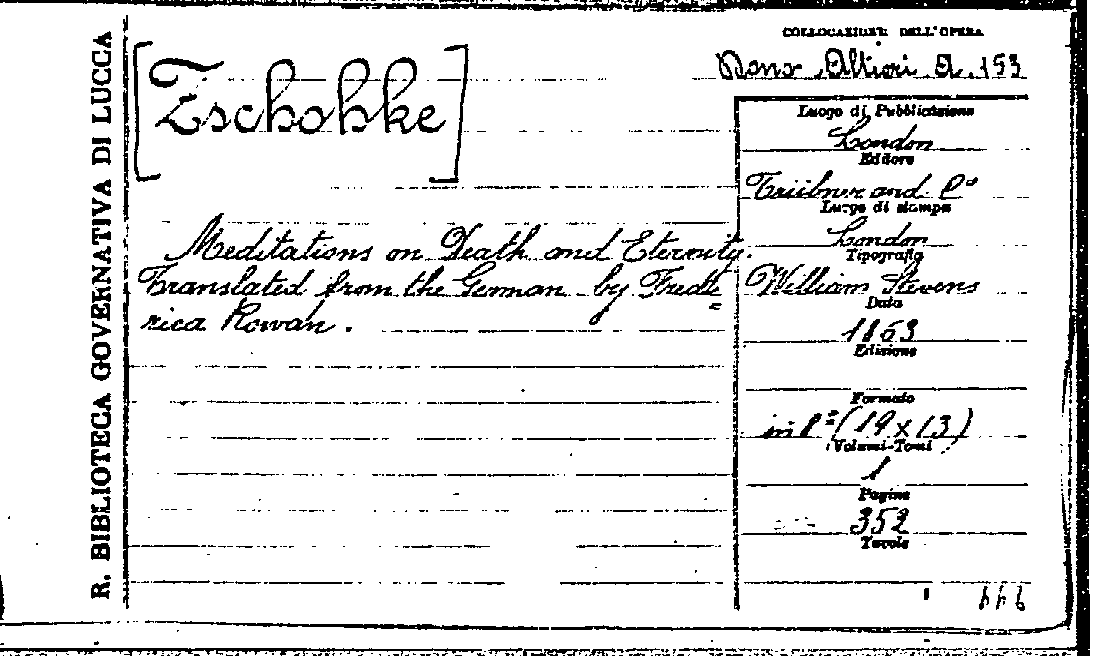 R. BIBLIOTECA GOVERNATIVA DI LUCCA
COLLOCAZIONE DELL'OPERA
Dono Altieri A. 153
[Zschohke]
Meditations on Death and Eternity.
Translated from the German by Frede=
rica Rowan.
Luogo di Pubblicazione
London
Editore
Trübner and Cº
Luogo di stampa
London
Tipografia
William Stevens
Data
1863
Edizione
Formato
in 8º (19 x 13)
Volumi-Tomi
1
Pagine
352
Tavole